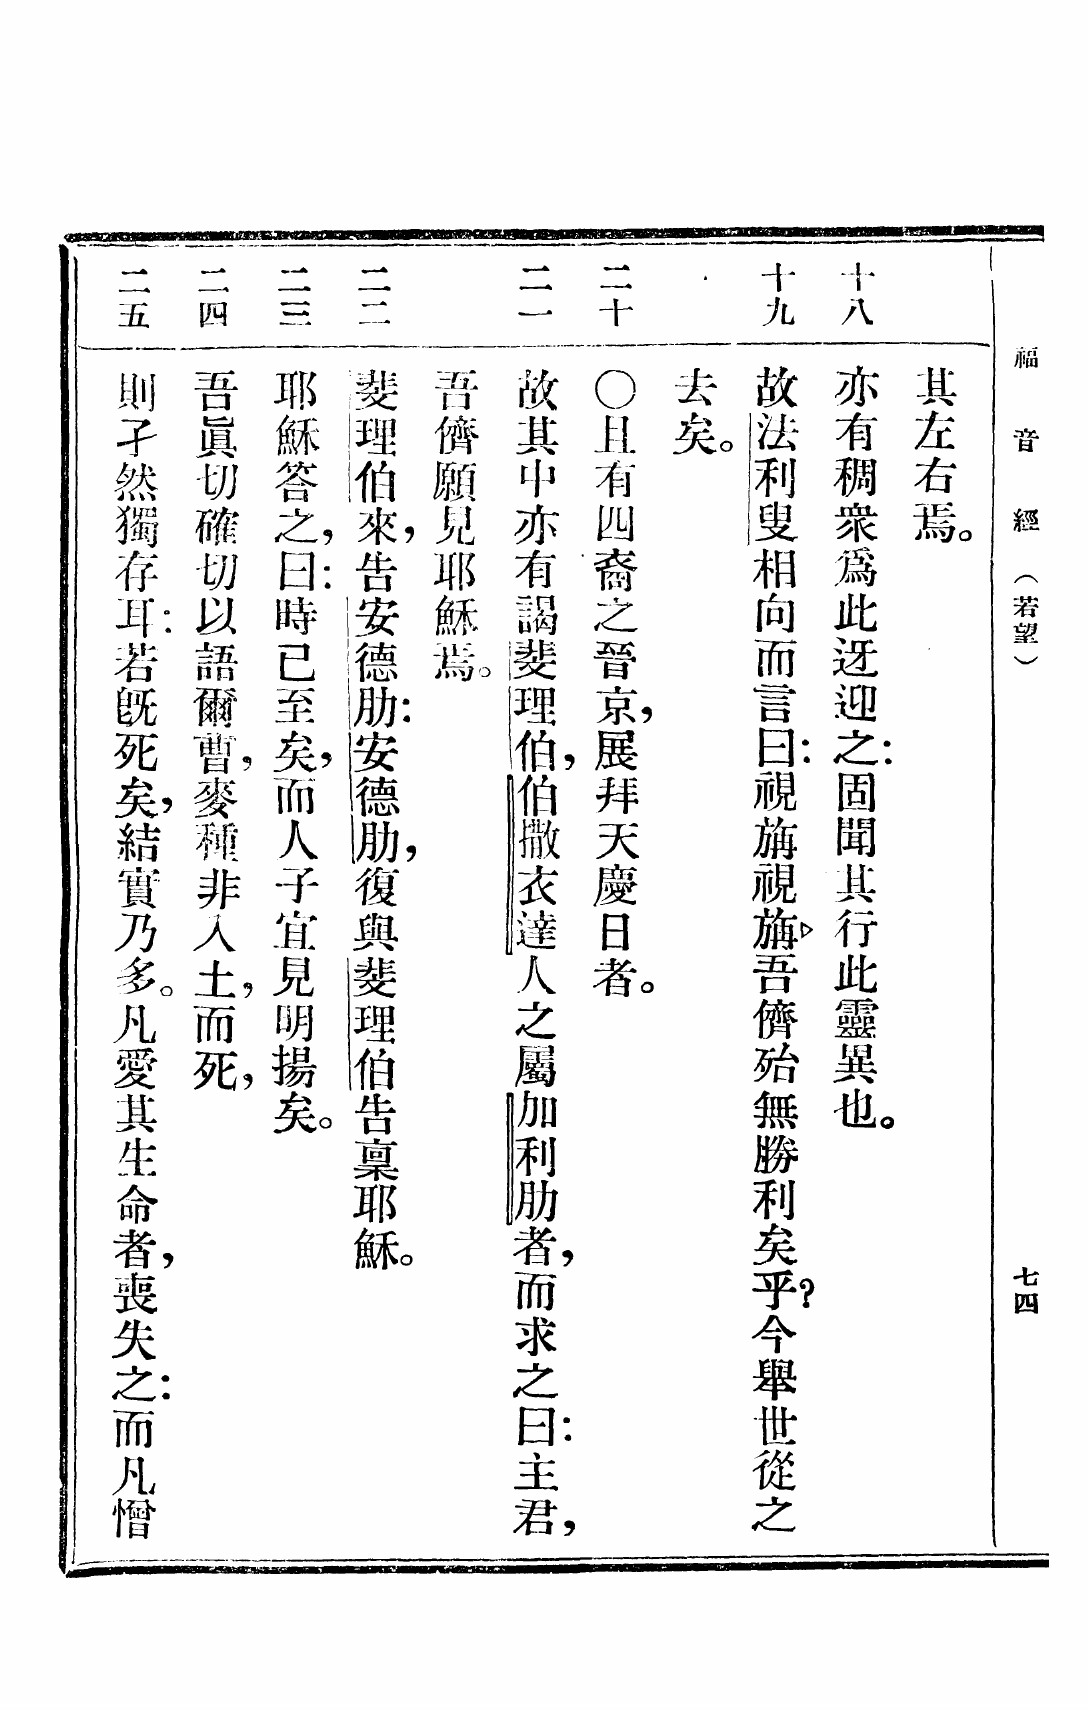 福音經（若望） 七四
其左右焉。
十八 亦有稠衆爲此迓迎之：固聞其行此靈異也。
十九 故法利叟相向而言曰：視旃視旃，吾儕殆無勝利矣乎？今舉世從之
去矣。
二十 〇且有四裔之晉京，展拜天慶日者。
二一 故其中亦有謁斐理伯，伯撒衣達人之屬加利肋者，而求之曰：主君，
吾儕願見耶穌焉。
二二 斐理伯來，告安德肋：安德肋，復與斐理伯告稟耶穌。
二三 耶穌答之，曰：時已至矣，而人子宜見明揚矣。
二四 吾眞切確切以語爾曹，麥種非入土，而死，
二五 則孑然獨存耳：若旣死矣，結實乃多。凡愛其生命者，喪失之：而凡憎